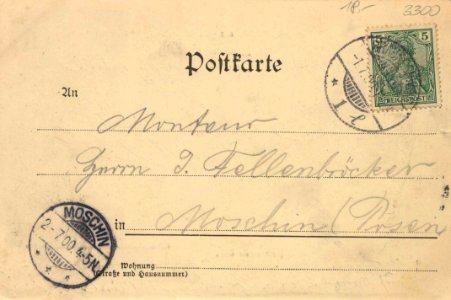 18.- 3300
5
REICHSPOST
-1.7.00
Postkarte
An
Monteur
Herrn J. Fellenböcker
in Moschin (Posen
MOSCHIN
2-7.00.4-5N
Wohnung
(Straße und Hausnummer)